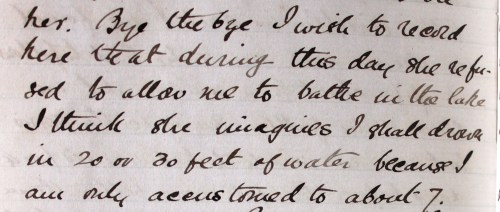 her. Bye the bye I wish to record
here that during this day she refu-
sed to allow me to bathe in the lake
I think she imagines I shall drown
in 20 or 30 feet of water because I
am only accustomed to about 7.